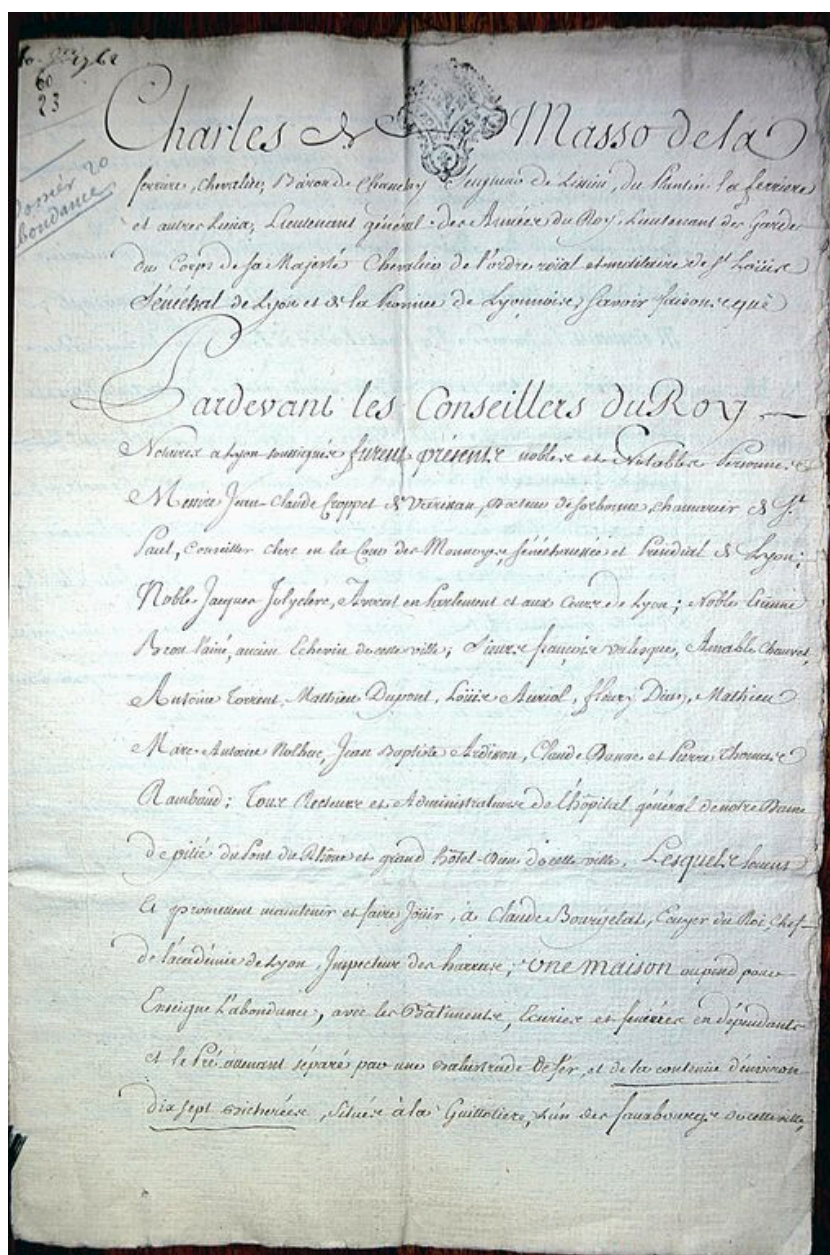 1762
60
23
Dossier 20
abondance
Charles de Masso de la
ferriere, Chevalier, Baron de Chamelay Seigneur de Lissieu, du Plantin la ferriere
et autres Lieux, Lieutenant général des Armées du Roy, Lieutenant des Gardes
du Corps de sa Majesté Chevalier de l'ordre roïal et militaire de St Loüis
Sénéchal de Lyon et de la Province de Lyonnois, savoir faisons que
Pardevant les Conseillers du Roy
Notaires a Lyon soussignés furent présents nobles et Notables Personnes
Messire Jean-Claude Croppet de Varissan, Docteur de Sorbonne, Chamarier de St
Paul, Conseiller clerc en la Cour des Monnoyes, sénéchaussée et Présidial de Lyon;
Noble Jacques Jolyclerc, Avocat en Parlement et aux Cours de Lyon; Noble Etienne
Bron l'ainé, ancien Echevin de cette ville; Sieurs françois Valesque, Aimable Chauvet,
Antoine Torrent, Mathieu Dupont, Loüis Auriol, fleury Dian, Mathieu
Marc-Antoine Nolhac, Jean Baptiste Ardisson, Claude Bonne et Pierre Thomas
Rambaud; Tous Recteurs et Administrateurs de l'hôpital général de notre Dame
de pitié du Pont du Rhône et grand hôtel-Dieu de cette ville. Lesquels louent
Et promettent maintenir et faire Joüir, à Claude Bourgelat, Ecuyer du Roi, Chef
de l'académie de Lyon, Inspecteur des harras, une maison où pend pour
Enseigne L'abondance, avec les Bâtiments, Ecuries et fenières en dépendants
et le Pré attenant séparé par une Balustrade de fer, et de la contenue d'environ
dix sept bicherées, située à la Guillotiere, l'un des fauxbourgs de cette ville,